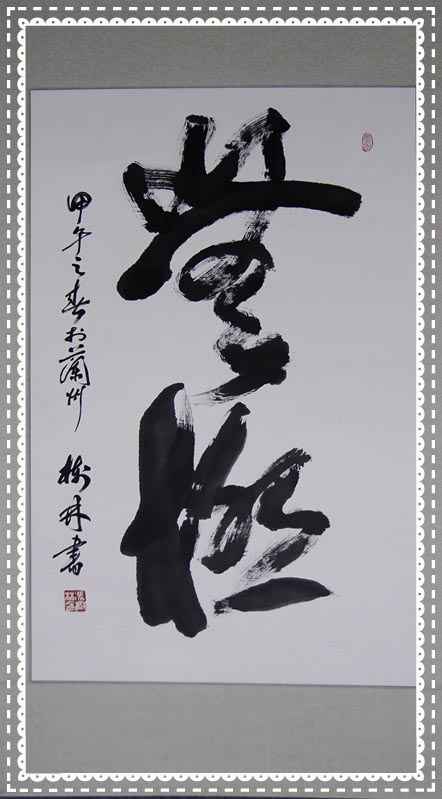 無極
甲午之春於蘭州 樹林書